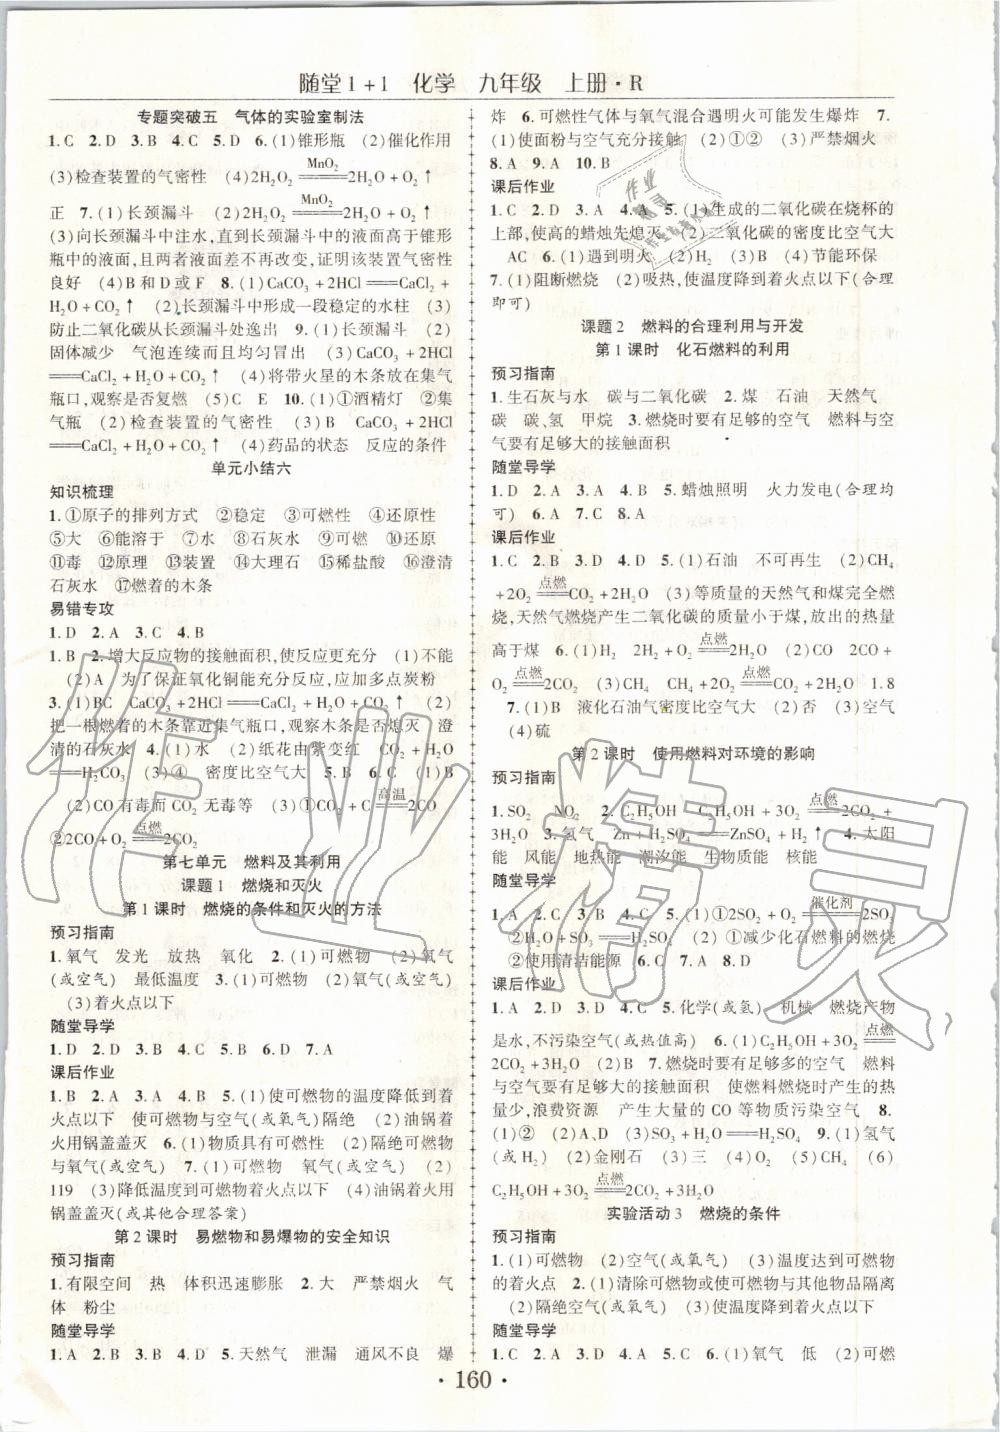 随堂1+1 化学 九年级 上册·R
专题突破五 气体的实验室制法
1.C 2.D 3.B 4.C 5.D 6.(1)锥形瓶 (2)催化作用
(3)检查装置的气密性 (4)2H₂O₂ ══MnO₂══ 2H₂O+O₂↑
正 7.(1)长颈漏斗 (2)2H₂O₂ ══MnO₂══ 2H₂O+O₂↑
(3)向长颈漏斗中注水,直到长颈漏斗中的液面高于锥形
瓶中的液面,且两者液面不再改变,证明该装置气密性
良好 (4)B和D或F 8.(1)CaCO₃+2HCl══CaCl₂+
H₂O+CO₂↑ (2)长颈漏斗中形成一段稳定的水柱 (3)
防止二氧化碳从长颈漏斗处逸出 9.(1)长颈漏斗 (2)
固体减少 气泡连续而且均匀冒出 (3)CaCO₃+2HCl
══CaCl₂+H₂O+CO₂↑ (4)将带火星的木条放在集气
瓶口,观察是否复燃 (5)C E 10.(1)①酒精灯 ②集
气瓶 (2)检查装置的气密性 (3)CaCO₃+2HCl
══CaCl₂+H₂O+CO₂↑ (4)药品的状态 反应的条件
单元小结六
知识梳理
1.①原子的排列方式 ②稳定 ③可燃性 ④还原性
⑤大 ⑥能溶于 ⑦水 ⑧石灰水 ⑨可燃 ⑩还原
⑪毒 ⑫原理 ⑬装置 ⑭大理石 ⑮稀盐酸 ⑯澄清
石灰水 ⑰燃着的木条
易错专攻
1.D 2.A 3.C 4.B
1.B 2.增大反应物的接触面积,使反应更充分 (1)不能
(2)A 为了保证氧化铜能充分反应,应加多点炭粉
3.(1)BC CaCO₃+2HCl══CaCl₂+H₂O+CO₂↑ (2)
把一根燃着的木条靠近集气瓶口,观察木条是否熄灭 澄
清的石灰水 4.(1)水 (2)纸花由紫变红 CO₂+H₂O
══H₂CO₃ (3)④ 密度比空气大 5.B 6.C (1)B
(2)CO有毒而CO₂无毒等 ①C+CO₂ ══高温══ 2CO
②2CO+O₂ ══点燃══ 2CO₂
第七单元 燃料及其利用
课题1 燃烧和灭火
第1课时 燃烧的条件和灭火的方法
预习指南
1.氧气 发光 放热 氧化 2.(1)可燃物 (2)氧气
(或空气) 最低温度 3.(1)可燃物 (2)氧气(或空气)
(3)着火点以下
随堂导学
1.D 2.D 3.B 4.C 5.B 6.D 7.A
课后作业
1.B 2.D 3.A 4.B 5.(1)使可燃物的温度降低到着
火点以下 使可燃物与空气(或氧气)隔绝 (2)油锅着
火用锅盖盖灭 6.(1)物质具有可燃性 (2)隔绝可燃物
与氧气(或空气) 7.(1)可燃物 氧气(或空气) (2)
119 (3)降低温度到可燃物着火点以下 (4)油锅着火用
锅盖盖灭(或其他合理答案)
第2课时 易燃物和易爆物的安全知识
预习指南
1.有限空间 热 体积迅速膨胀 2.大 严禁烟火 气
体 粉尘
随堂导学
1.A 2.B 3.B 4.D 5.天然气 泄漏 通风不良 爆
炸 6.可燃性气体与氧气混合遇明火可能发生爆炸 7.
(1)使面粉与空气充分接触 (2)①② (3)严禁烟火
8.A 9.A 10.B
课后作业
1.C 2.D 3.A 4.A 5.(1)生成的二氧化碳在烧杯的
上部,使高的蜡烛先熄灭 (2)二氧化碳的密度比空气大
AC 6.(1)遇到明火 (2)H₂ (3)B (4)节能环保
7.(1)阻断燃烧 (2)吸热,使温度降到着火点以下(合理
即可)
课题2 燃料的合理利用与开发
第1课时 化石燃料的利用
预习指南
1.生石灰与水 碳与二氧化碳 2.煤 石油 天然气
碳 碳、氢 甲烷 3.燃烧时要有足够的空气 燃料与空
气要有足够大的接触面积
随堂导学
1.D 2.A 3.A 4.B 5.蜡烛照明 火力发电(合理均
可) 6.A 7.C 8.A
课后作业
1.C 2.B 3.D 4.D 5.(1)石油 不可再生 (2)CH₄
+2O₂ ══点燃══ CO₂+2H₂O (3)等质量的天然气和煤完全燃
烧,天然气燃烧产生二氧化碳的质量小于煤,放出的热量
高于煤 6.(1)H₂ 2H₂+O₂ ══点燃══ 2H₂O (2)CO 2CO+
O₂ ══点燃══ 2CO₂ (3)CH₄ CH₄+2O₂ ══点燃══ CO₂+2H₂O 1.8
7.(1)B 液化石油气密度比空气大 (2)否 (3)空气
(4)硫
第2课时 使用燃料对环境的影响
预习指南
1.SO₂ NO₂ 2.C₂H₅OH C₂H₅OH+3O₂ ══点燃══ 2CO₂+
3H₂O 3.氢气 Zn+H₂SO₄══ZnSO₄+H₂↑ 4.太阳
能 风能 地热能 潮汐能 生物质能 核能
随堂导学
1.A 2.C 3.D 4.C 5.(1)①2SO₂+O₂ ══催化剂══ 2SO₃
②H₂O+SO₃══H₂SO₄ (2)①减少化石燃料的燃烧
②使用清洁能源 6.C 7.A 8.D
课后作业
1.A 2.D 3.D 4.C 5.化学(或氢) 机械 燃烧产物
是水,不污染空气(或热值高) 6.(1)C₂H₅OH+3O₂ ══点燃══
2CO₂+3H₂O (2)B 7.燃烧时要有足够多的空气 燃料
与空气要有足够大的接触面积 使燃料燃烧时产生的热
量少,浪费资源 产生大量的CO等物质污染空气 8.
(1)② (2)A、D (3)SO₃+H₂O══H₂SO₄ 9.(1)氢气
(或H₂) (2)金刚石 (3)三 (4)CO₂ (5)CH₄ (6)
C₂H₅OH+3O₂ ══点燃══ 2CO₂+3H₂O
实验活动3 燃烧的条件
预习指南
1.(1)可燃物 (2)空气(或氧气) (3)温度达到可燃物
的着火点 2.(1)清除可燃物或使可燃物与其他物品隔离
(2)隔绝空气(或氧气) (3)使温度降到着火点以下
随堂导学
1.C 2.C 3.A 4.A 5.C 6.(1)氧气 低 (2)可燃
·160·
作业精灵